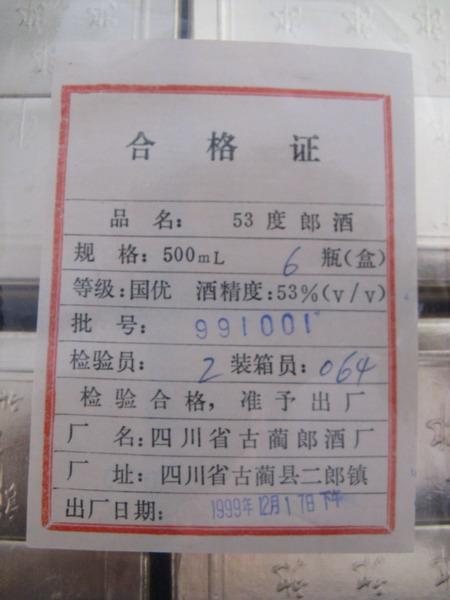 合格证
品名: 53度郎酒
规格: 500mL 6 瓶(盒)
等级: 国优 酒精度: 53%(v/v)
批号: 991001
检验员: 2 装箱员: 064
检验合格, 准予出厂
厂名: 四川省古蔺郎酒厂
厂址: 四川省古蔺县二郎镇
出厂日期: 1999年12月17日下午